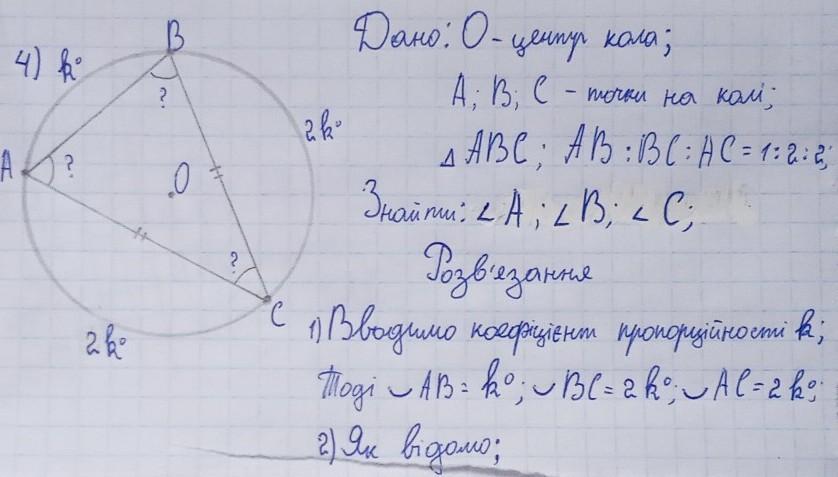 4) k° B
2k°
A ? ? O
?
C
2k°
Дано: O - центр кола;
A; B; C - точки на колі;
△ ABC; AB : BC : AC = 1:2:2;
Знайти: ∠A; ∠B; ∠C;
Розв'язання
1) Вводимо коефіцієнт пропорційності k;
Тоді ◡AB = k°; ◡BC = 2k°; ◡AC = 2k°;
2) Як відомо;